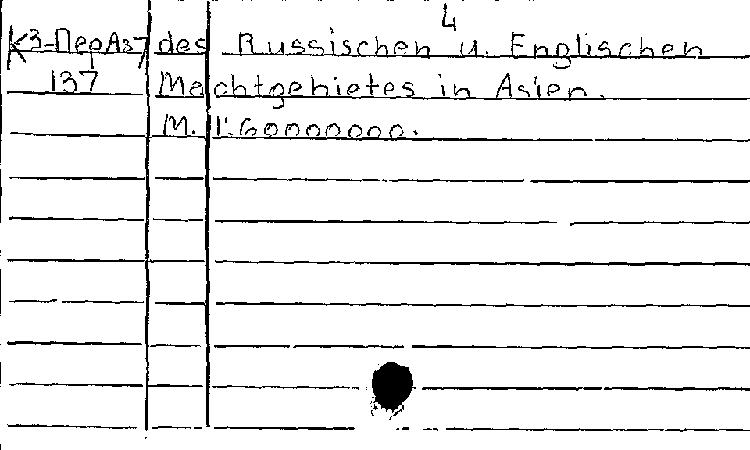 4
К3-ПерАз7 des Russischen u. Englischen
137 Machtgebietes in Asien.
M. 1:60000000.